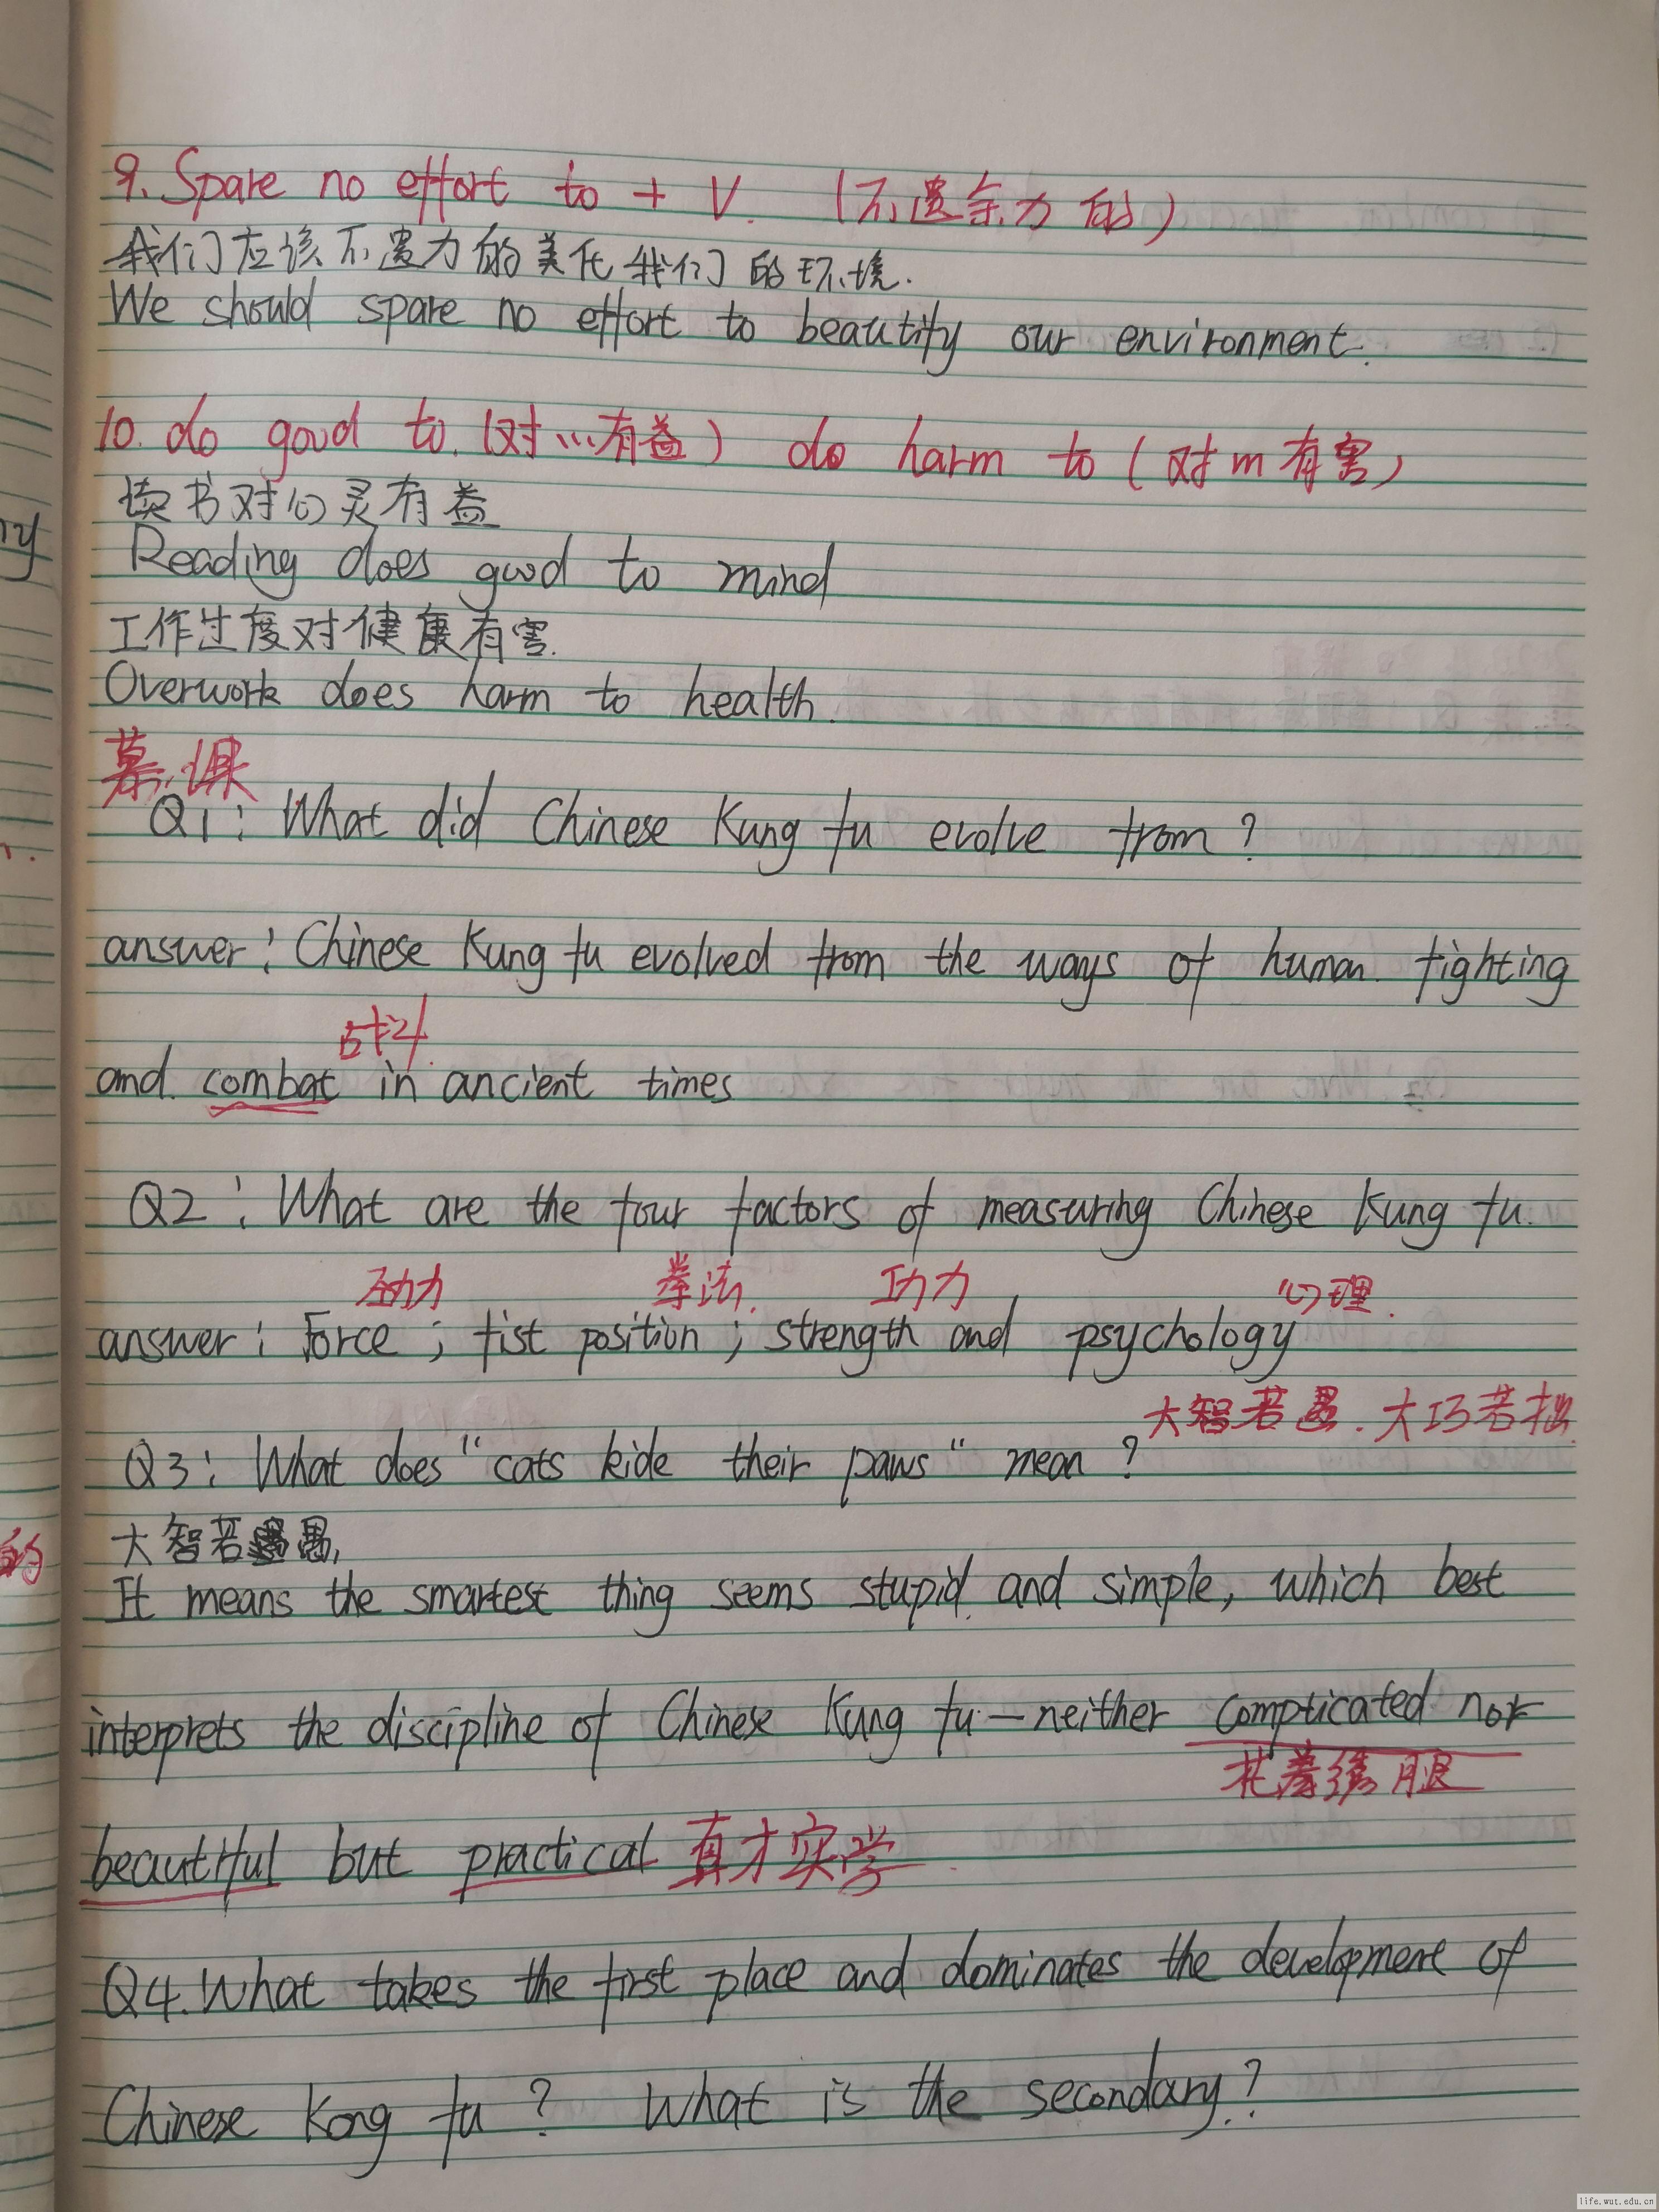 9. Spare no effort to + V. (不遗余力的)
我们应该不遗力的美化我们的环境.
We should spare no effort to beautify our environment.
10. do good to. (对...有益) do harm to (对m有害)
读书对心灵有益
Reading does good to mind
工作过度对健康有害.
Overwork does harm to health.
慕课
Q1: What did Chinese Kung fu evolve from?
answer: Chinese Kung fu evolved from the ways of human fighting
战斗
and combat in ancient times
Q2: What are the four factors of measuring Chinese Kung fu.
劲力 拳法. 功力 心理.
answer: Force; fist position; strength and psychology
大智若愚.大巧若拙.
Q3: What does "cats hide their paws" mean?
大智若愚,
It means the smartest thing seems stupid and simple, which best
interprets the discipline of Chinese Kung fu—neither complicated nor
花拳绣腿
beautiful but practical 真才实学
Q4. What takes the first place and dominates the development of
Chinese Kong fu? What is the secondary?
的
life.wut.edu.cn